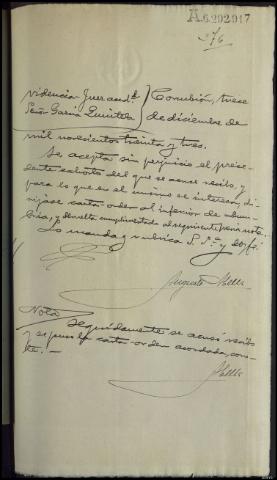 A.6.202.917
76
videncia Juez acctl.) Corcubión, trece
Señor García Quintela) de diciembre de
mil novecientos treinta y tres.
Se acepta sin perjuicio el prece-
dente exhorto del que se acuse recibo, y
para lo que en el mismo se interesa, di-
ríjase carta-orden al inferior de
y devuelta cumplimentada
Lo manda y rubrica S. Sª. y doy fé.
Augusto
Nota/ Seguidamente se acusó recibo
y se puso la carta-orden acordada, cons-
te.-